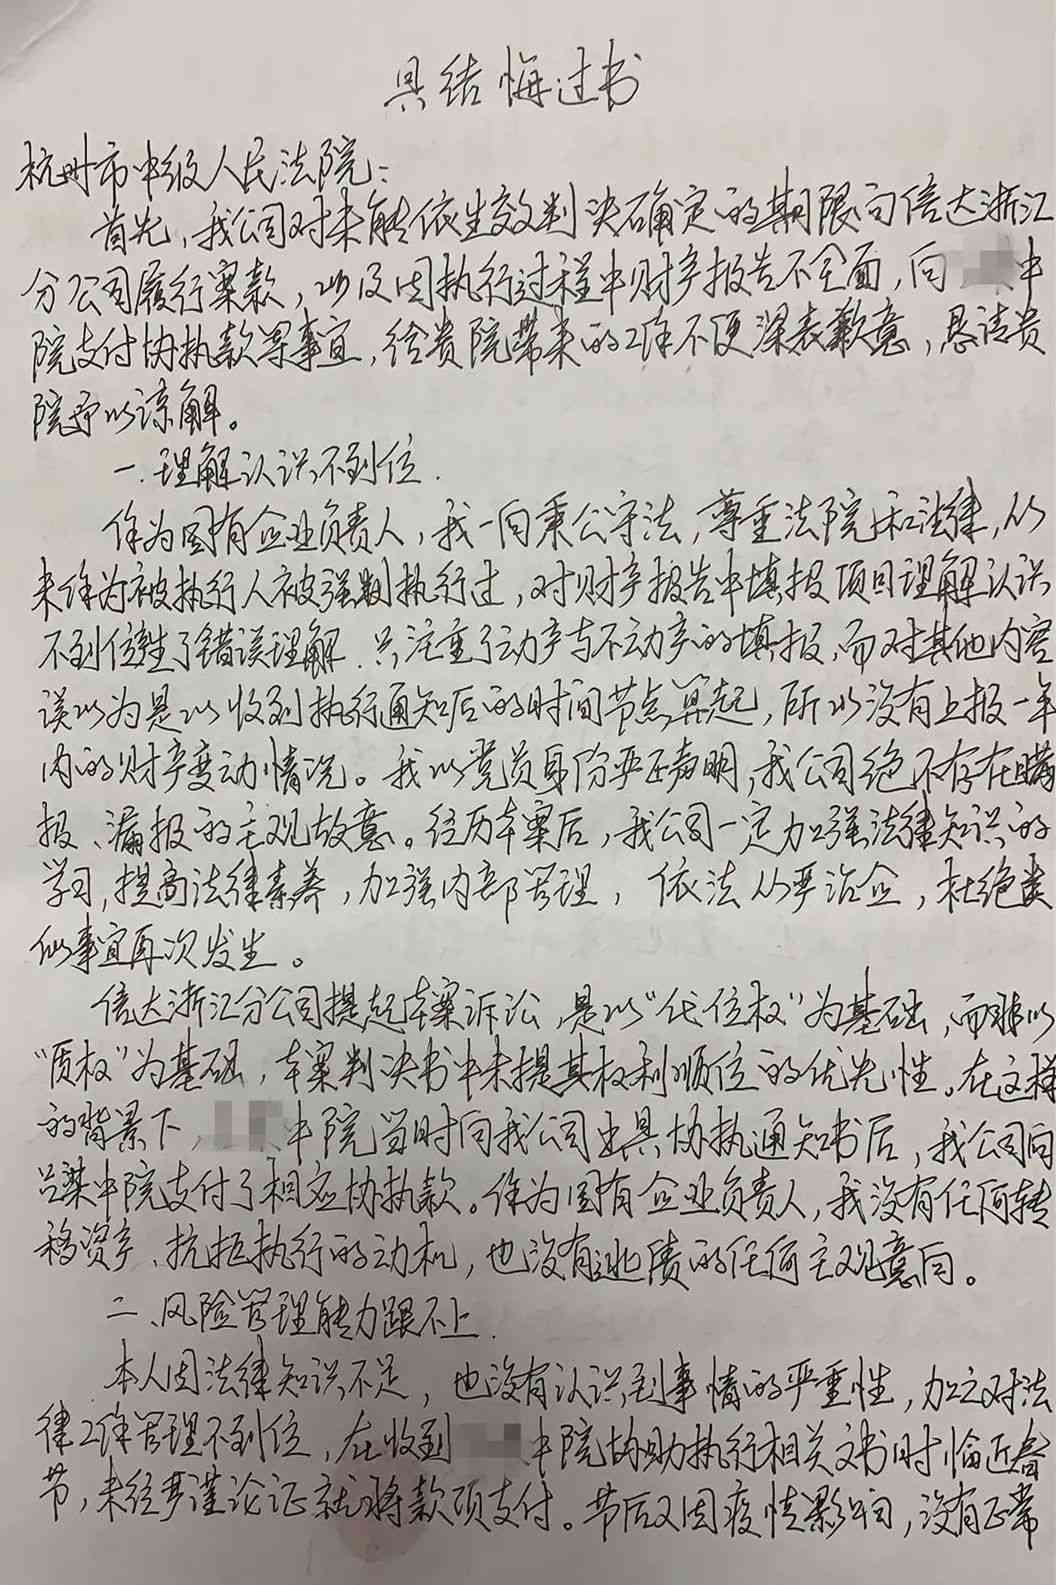 具结悔过书
杭州市中级人民法院：
首先，我公司对未能依生效判决确定的期限向信达浙江
分公司履行案款，以及因执行过程中财产报告不全面，向中
院支付协执款等事宜，给贵院带来的工作不便深表歉意，恳请贵
院予以谅解。
一.理解认识不到位.
作为国有企业负责人，我一向秉公守法，尊重法院和法律，从
未作为被执行人被强制执行过，对财产报告中填报项目理解认识
不到位产生了错误理解.只注重了动产与不动产的填报，而对其他内容
误以为是以收到执行通知后的时间节点算起，所以没有上报一年
内的财产变动情况。我以党员身份严正声明，我公司绝不存在瞒
报、漏报的主观故意。经历本案后，我公司一定加强法律知识的
学习，提高法律素养，加强内部管理，依法从严治企，杜绝类
似事宜再次发生。
信达浙江分公司提起本案诉讼，是以“代位权”为基础，而非以
“质权”为基础，本案判决书中未提其权利顺位的优先性。在这样
的背景下，中院当时向我公司出具协执通知书后，我公司向
吕梁中院支付了相应协执款。作为国有企业负责人，我没有任何转
移资产、抗拒执行的动机，也没有逃债的任何主观意向。
二、风险管理能力跟不上.
本人因法律知识不足，也没有认识到事情的严重性，加之对法
律工作管理不到位，在收到中院协助执行相关文书时临近春
节，未经严谨论证就将款项支付。节后又因疫情影响，没有正常